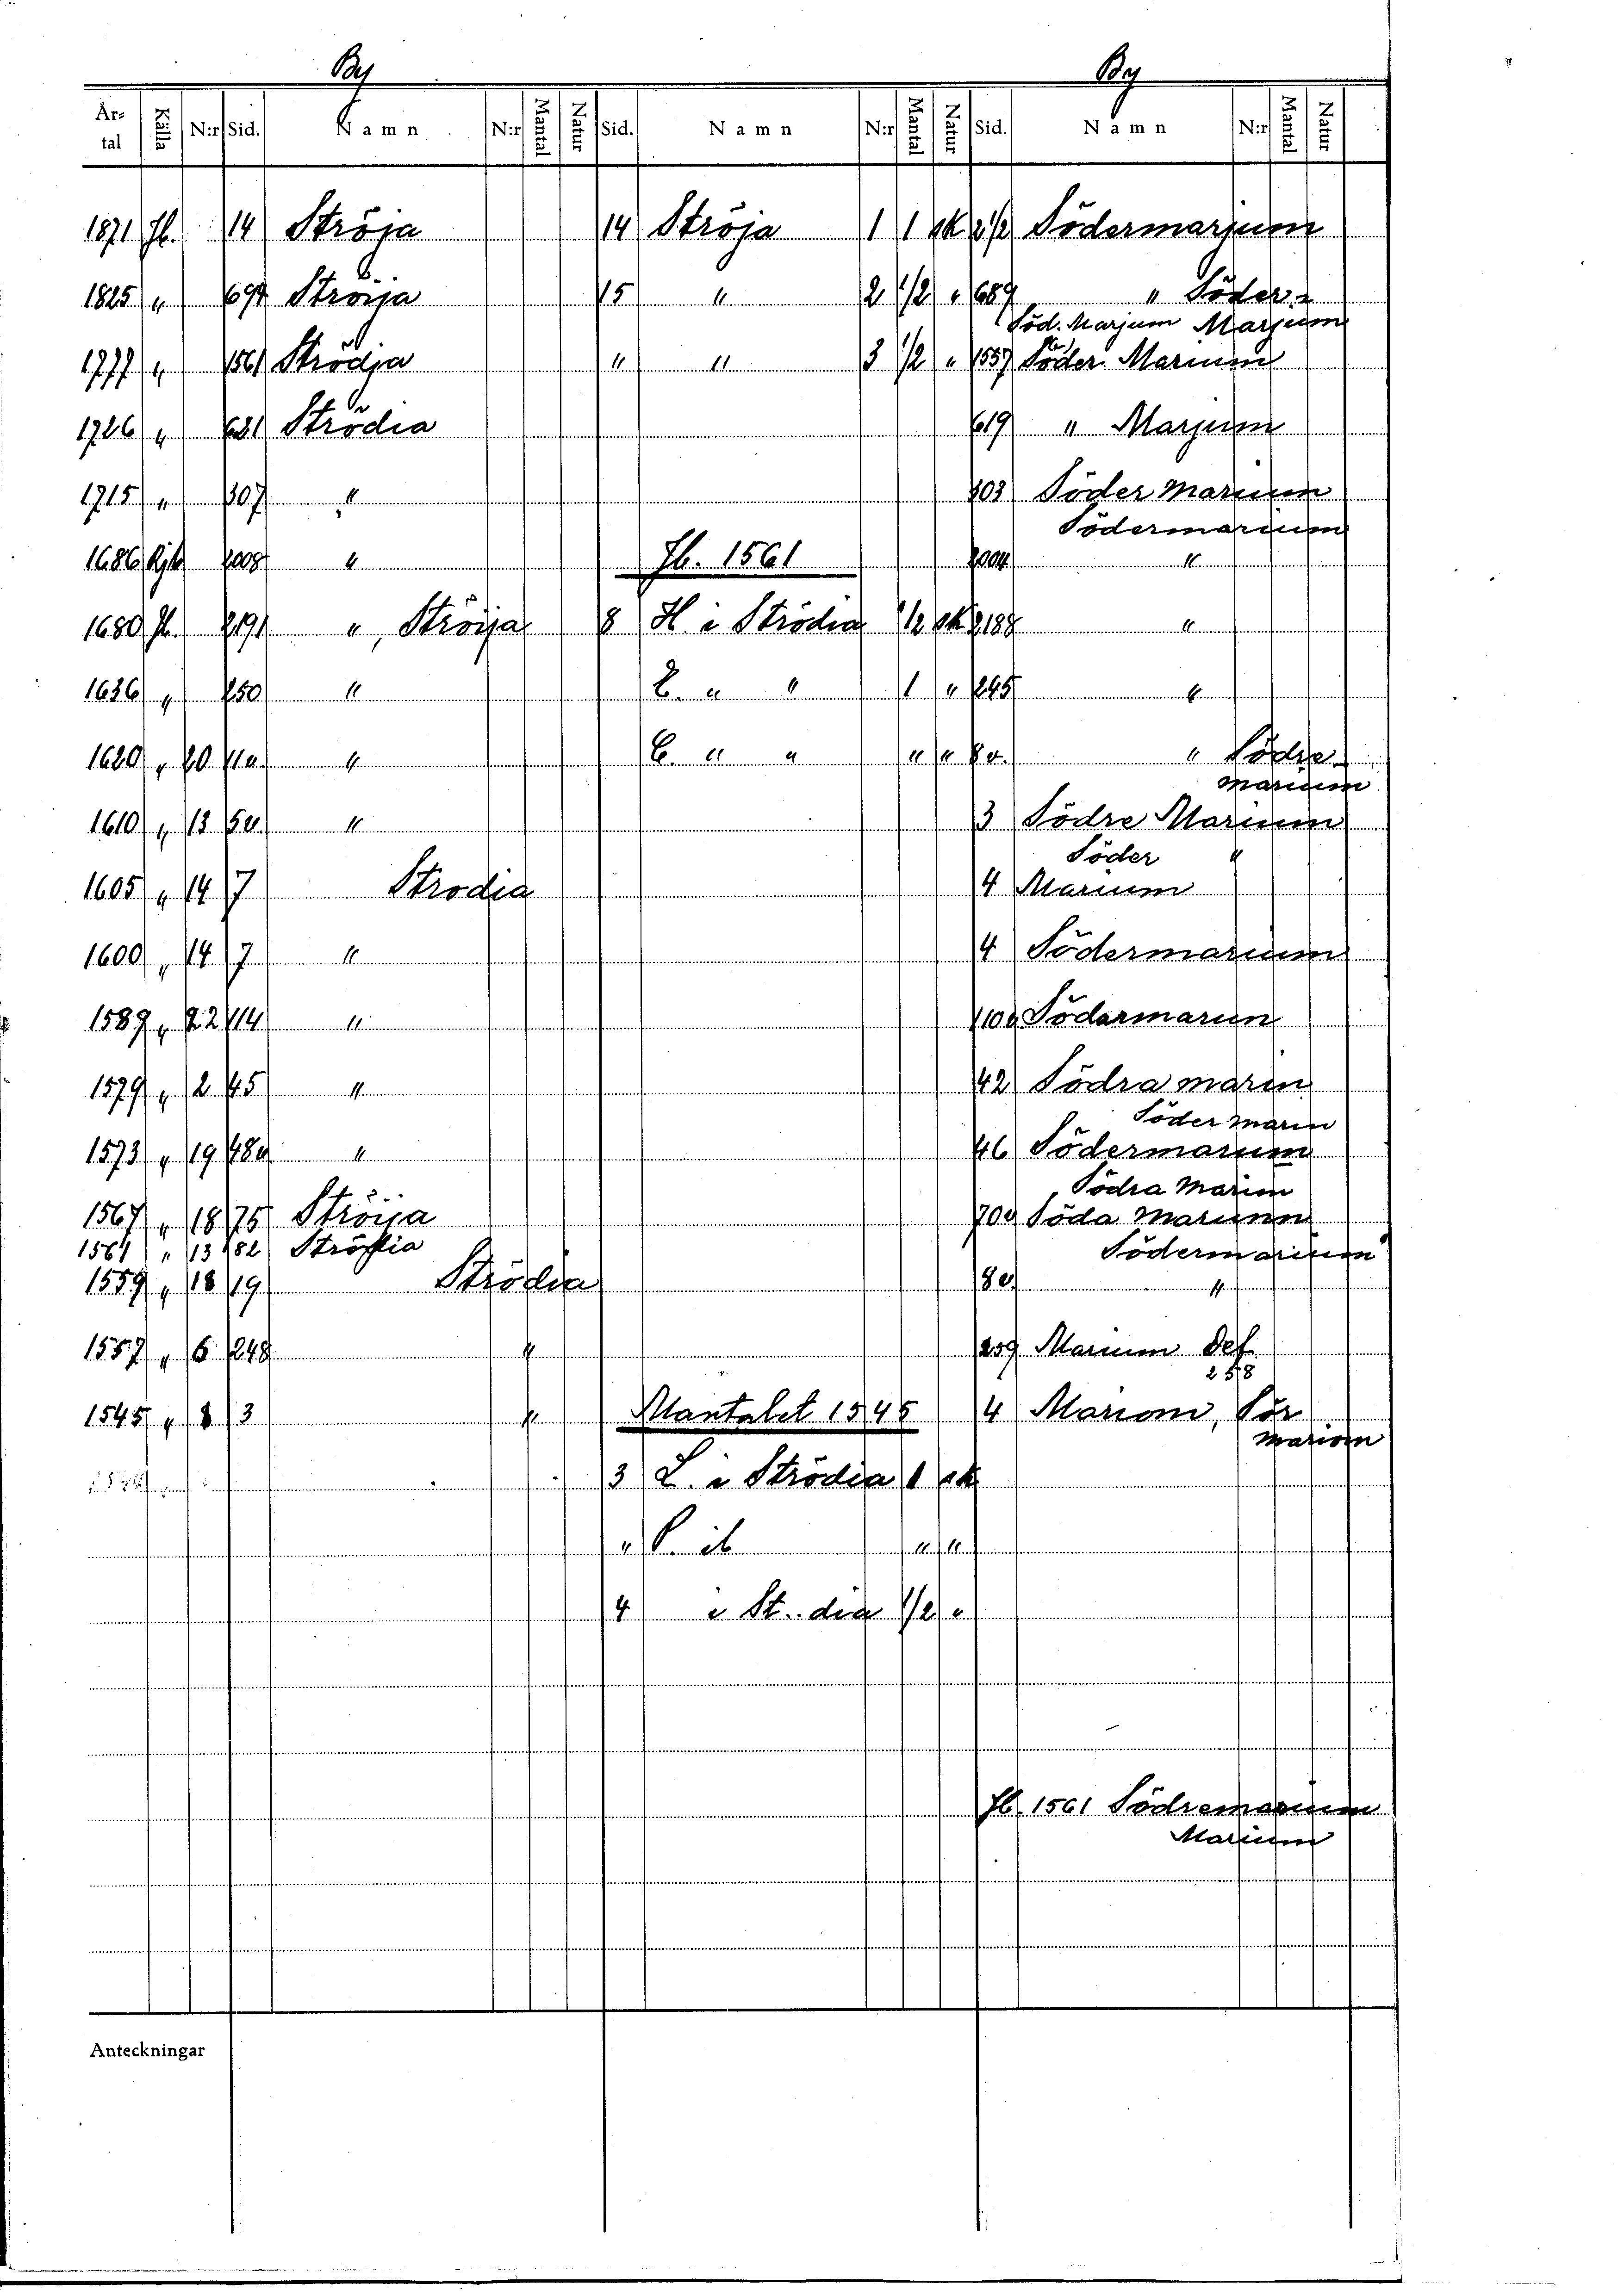 By By
År-tal Källa N:r Sid. Namn N:r Mantal Natur Sid. Namn N:r Mantal Natur Sid. Namn N:r Mantal Natur
1871 Jb. 14 Ströja 14 Ströja 1 1 sk 2 1/2 Södermarjum
1825 " 694 Ströija 15 " 2 1/2 " 689 " Söder-
Söd. Marjum Marjum
1777 " 1561 Strödja " " 3 1/2 " 1557 Söder Marium
1726 " 621 Strödia 619 " Marjum
1715 " 807 " 803 Söder marium
Södermarium
1686 Rjb 2008 " Jb. 1561 2004 "
1680 Jb. 2191 ", Ströija 8 H. i Strödia 1/2 sk 2188 "
1636 " 250 " L. " " 1 " 245 "
1620 " 20 11a " C. " " " " 8v. " Södre
marium
1610 " 13 5a " 3 Södre Marium
Söder "
1605 " 14 7 Strodia 4 Marium
1600 " 14 7 " 4 Södermarium
1589 " 22 114 " 110a Södermarun
1579 " 2 45 " 42 Södra marin
Söder marin
1573 " 19 48a " 46 Södermarium
Södra Marim
1567 " 18 75 Ströija 70a Söda Marium
1561 " 13 182 Södermarium
1559 " 18 19 Strödia 8a "
1557 " 6 248 " 259 Marium Def.
258
1545 " 8 3 " Mantalet 1545 4 Mariom, Sör
mariom
3 L. i Strödia 1 sk
" P. ib " "
4 i St..dia 1/2 "
Jb. 1561 Södremarium
Marium
Anteckningar